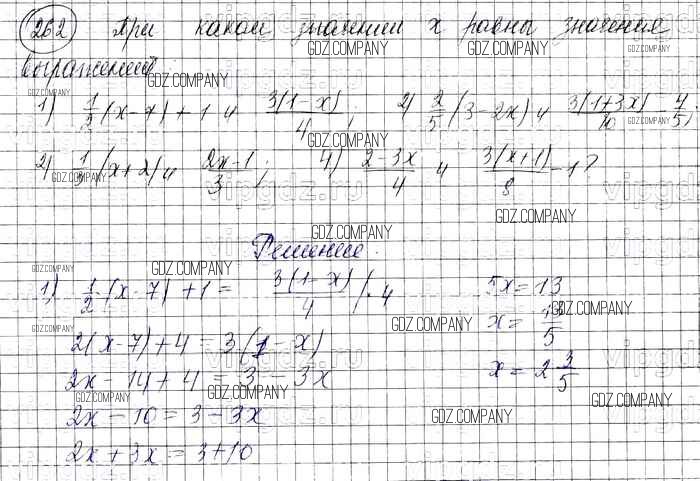 262 При каком значении x равны значения
выражений
1) 1/2 (x-7) + 1 и 3(1-x)/4; 2) 2/5 (3-2x) и 3(1+3x)/10 - 4/5;
2) 1/3 (x+2) и 2x-1/3; 4) 2-3x/4 и 3(x+1)/8 - 1?
Решение.
1) 1/2 · (x-7) + 1 = 3(1-x)/4 |· 4
2(x-7) + 4 = 3(1-x)
2x - 14 + 4 = 3 - 3x
2x - 10 = 3 - 3x
2x + 3x = 3 + 10
5x = 13
x = 13/5
x = 2 3/5
GDZ.COMPANY
vipgdz.ru